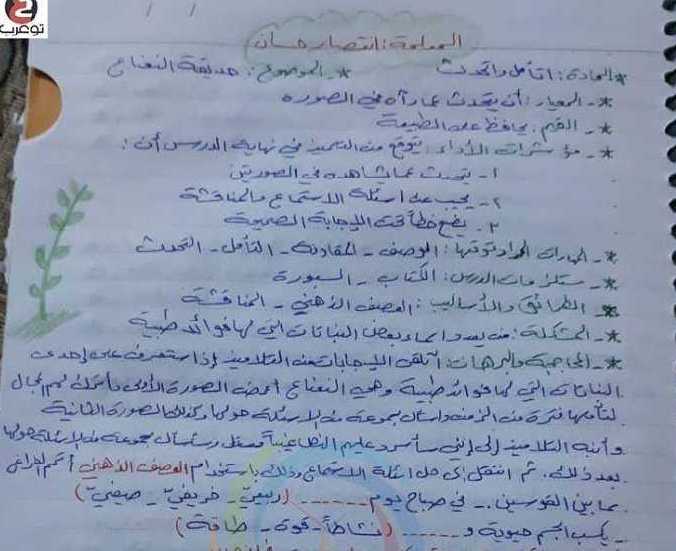 توعرب
المعلمة: انتصار حسان
* المادة: أتأمل وأتحدث * - الموضوع: حديقة النعناع
* - المعيار: أن يتحدث عما رآه في الصورة
* - القيم: يحافظ على الطبيعة
* - مؤشرات الأداء: يتوقع من التلميذ في نهاية الدرس أن:
١ - يتحدث عما يشاهده في الصورتين
٢ - يجيب على أسئلة الاستماع والمناقشة
٣ - يضع خطاً تحت الإجابة الصحيحة
* - المهارات المراد توقها: الوصف - المقارنة - التأمل - التحدث
* - مستلزمات الدرس: الكتاب - السبورة
* - الطرائق والأساليب: العصف الذهني - المناقشة
* - المشكلة: من يعدد أسماء بعض النباتات التي لها فوائد طبية
* - المحاجمة والبرهان: أتلقى الإجابات من التلاميذ إذاً سنتعرف على إحدى
النباتات التي لها فوائد طبية وهي النعناع أعرض الصورة الأولى وأترك لهم المجال
لتأملها فترة من الزمن وأسأل مجموعة من الأسئلة حولها وكذلك الصورة الثانية
وأنبه التلاميذ إلى أنني سأسرد عليهم النص غيباً وسأسأل مجموعة من الأسئلة حولها
بعد ذلك. ثم أنتقل إلى حل أسئلة الاستماع وذلك باستخدام العصف الذهني أتمم الفراغ
بما بين القوسين. - في صباح يوم ...... (ربيعيّ - خريفيّ - صيفيّ)
- يكسب الجسم حيوية و ...... (نشاطاً - قوة - طاقة)